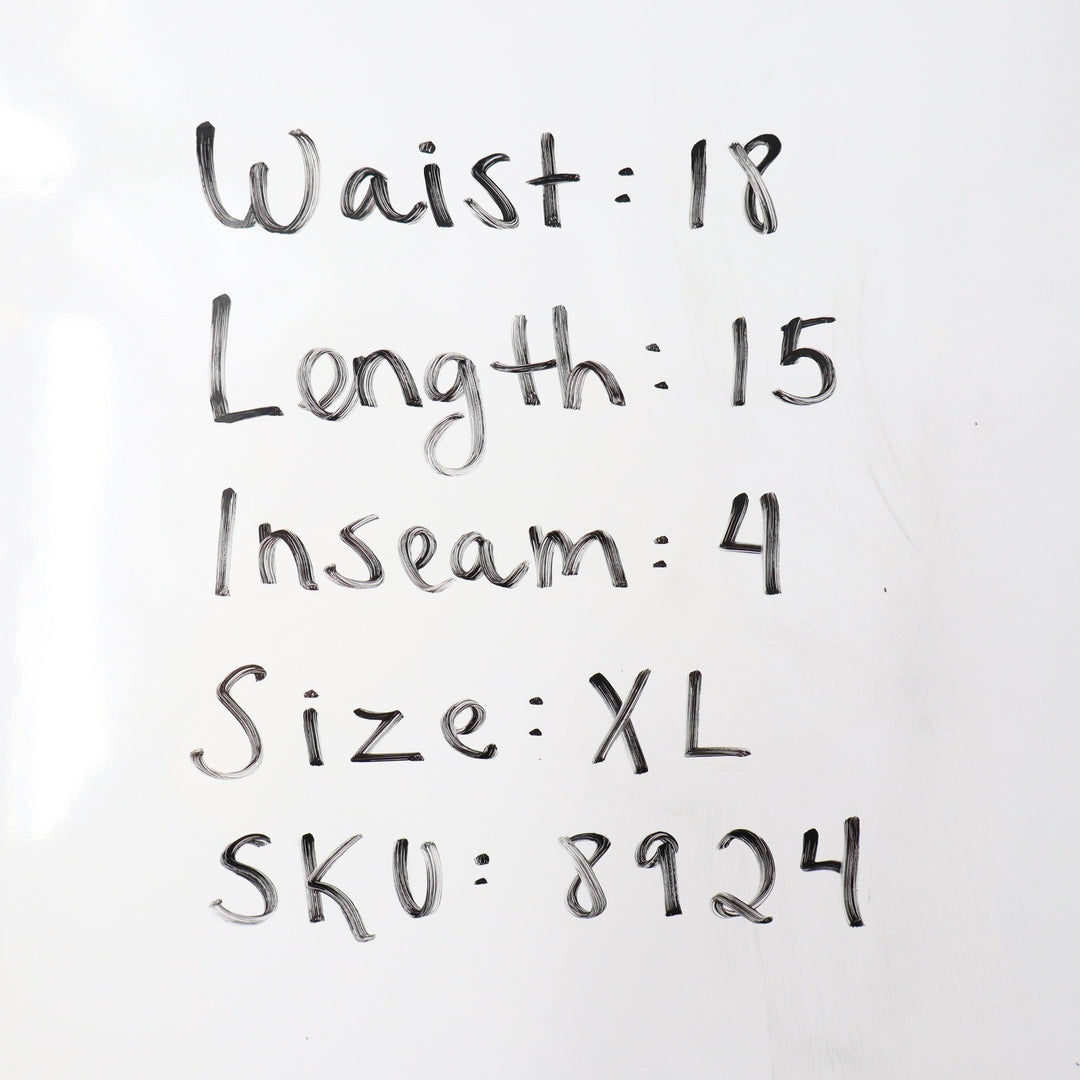 Waist: 18
Length: 15
Inseam: 4
Size: XL
SKU: 8924